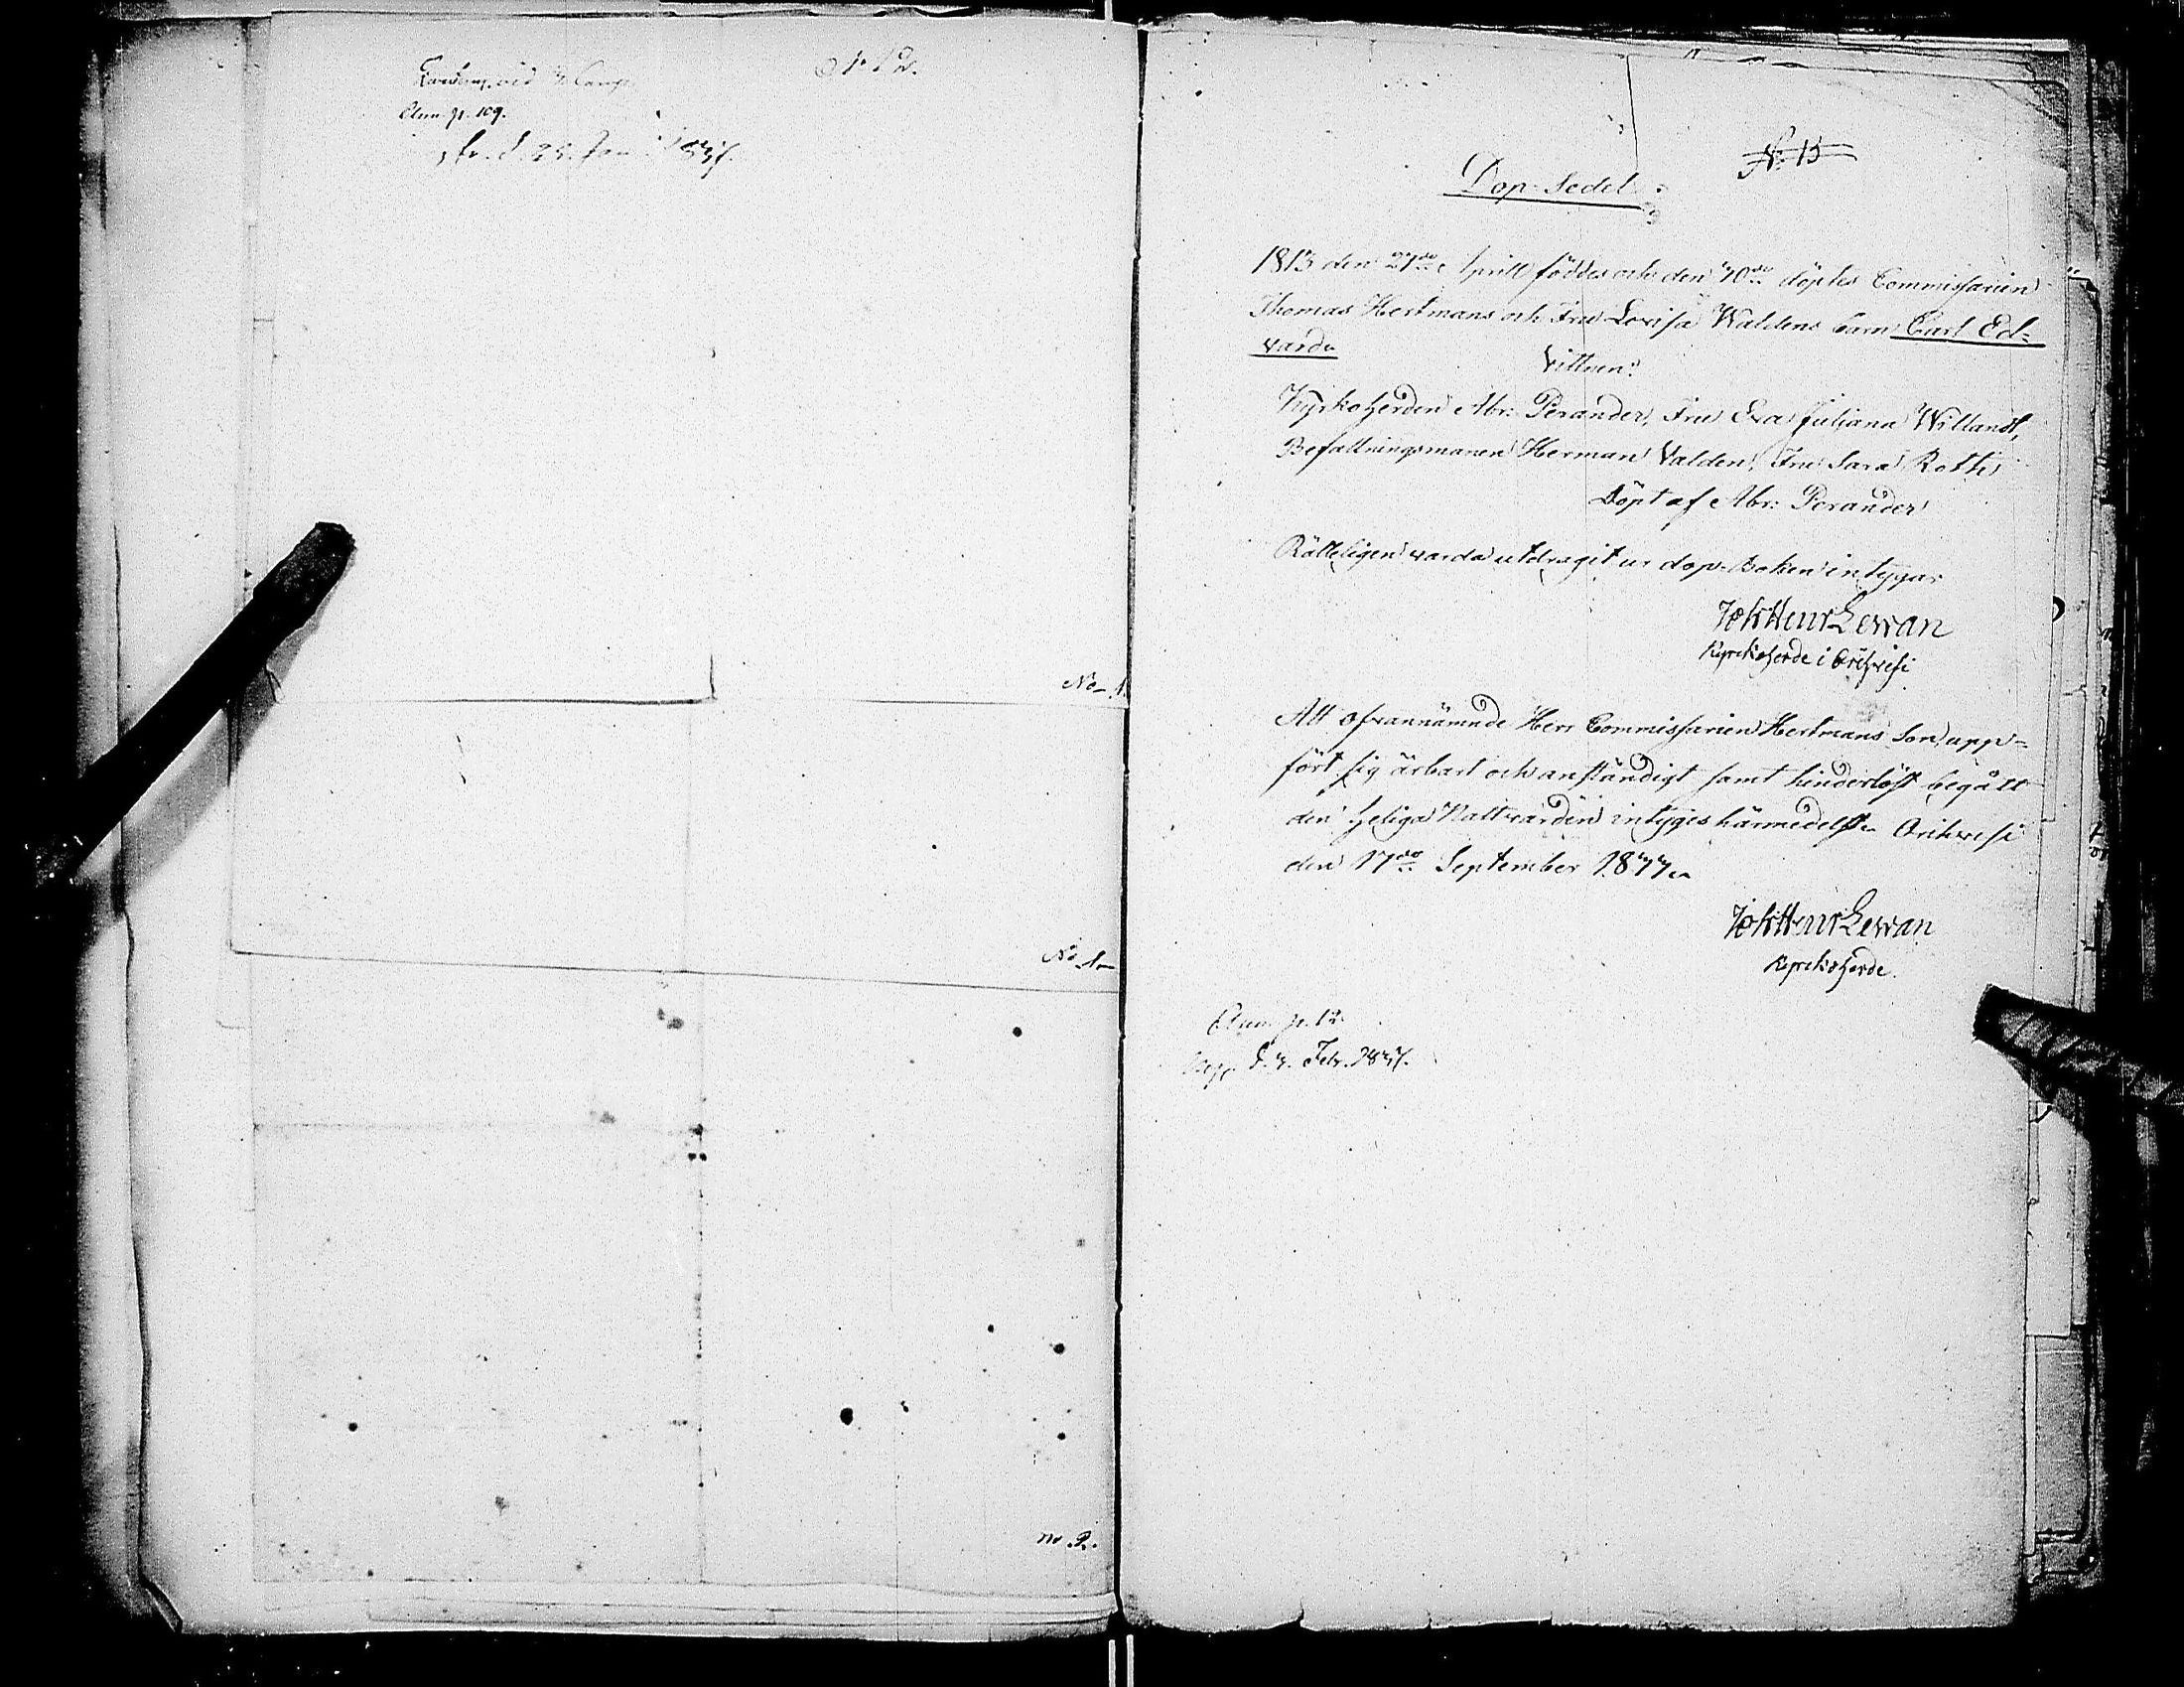 Elim. p. 109.
No 12.
No 1.
No 1
No 2.
No 15
Dop-Sedel
1813 den 27de Aprill föddes och den 30de döptes Commissarien
Thomas Hertmans och Fru Lovisa Waldens barn Carl Ed-
vard.
Vittnen:
Kyrkoherden Abr: Perander, Fru Eva Juliana Willandt,
Befallningsmanen Herman Valden, Fru Sara Roth
Döpt af Abr: Perander
Rätteligen varda utdragit ur dop-Boken intygar
Joh Henr Levan
Kyrckoherde i Orihvesi
Att ofvannämnde Herr Commissarien Hertmans Son, upp-
fört sig ärbart och anständigt samt hinderlöst begått
den heliga Nattvarden intygis härmedelst. Orihvesi
den 17de September 1833.
Joh Henr Levan
Kyrckoherde.
p. 12
d. 3. Febr. 1834.